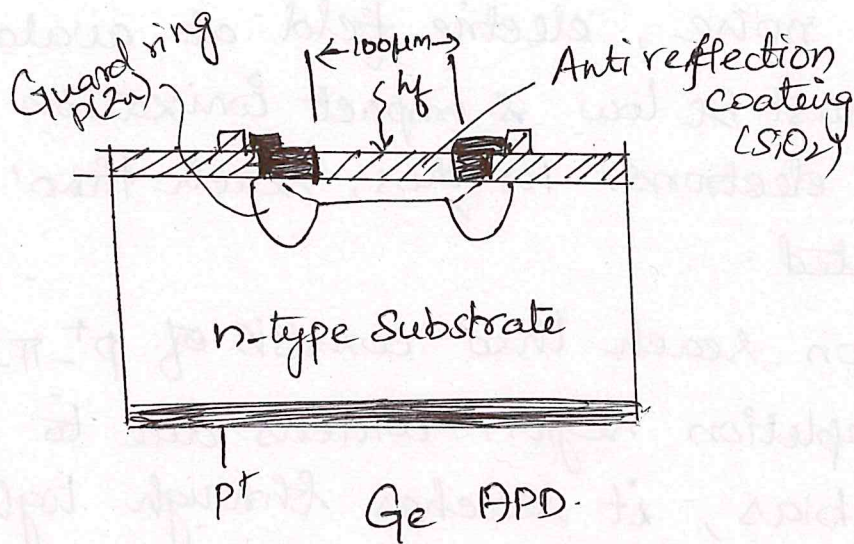 Guard ring
P(Zn)
←100µm→
hf
Anti reflection
coating
(SiO2)
n-type Substrate
P+
Ge APD.